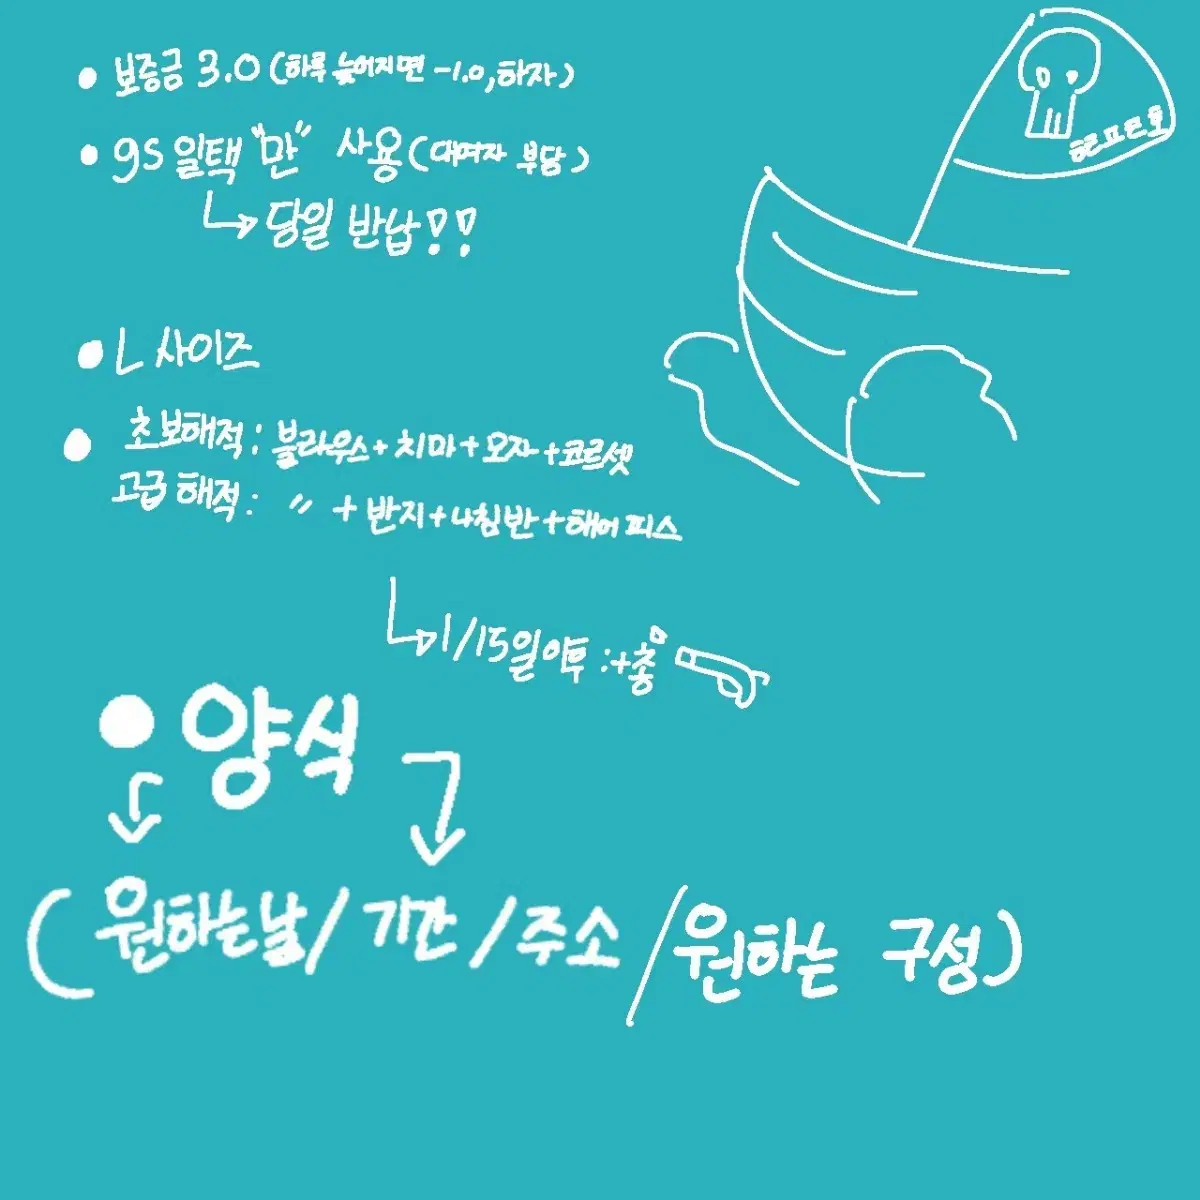 • 보증금 3.0 (하루 늦어지면 -1.0, 하자)
• gs 일택 "만" 사용 (대여자 부담)
↳ 당일 반납!!
• L 사이즈
• 초보해적 : 블라우스 + 치마 + 모자 + 코르셋
고급 해적 : 〃 + 반지 + 나침반 + 헤어피스
↳ 1/15일 이후 : + 총
• 양식
(원하는날 / 기간 / 주소 / 원하는 구성)